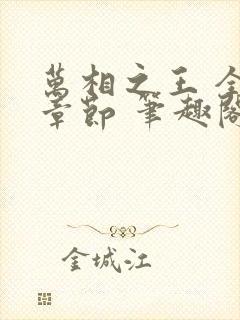 萬相之王 全
章節 筆趣閣
金城江